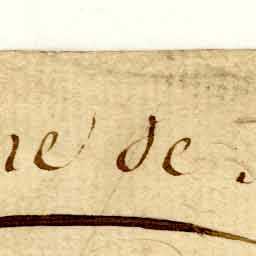 ne de